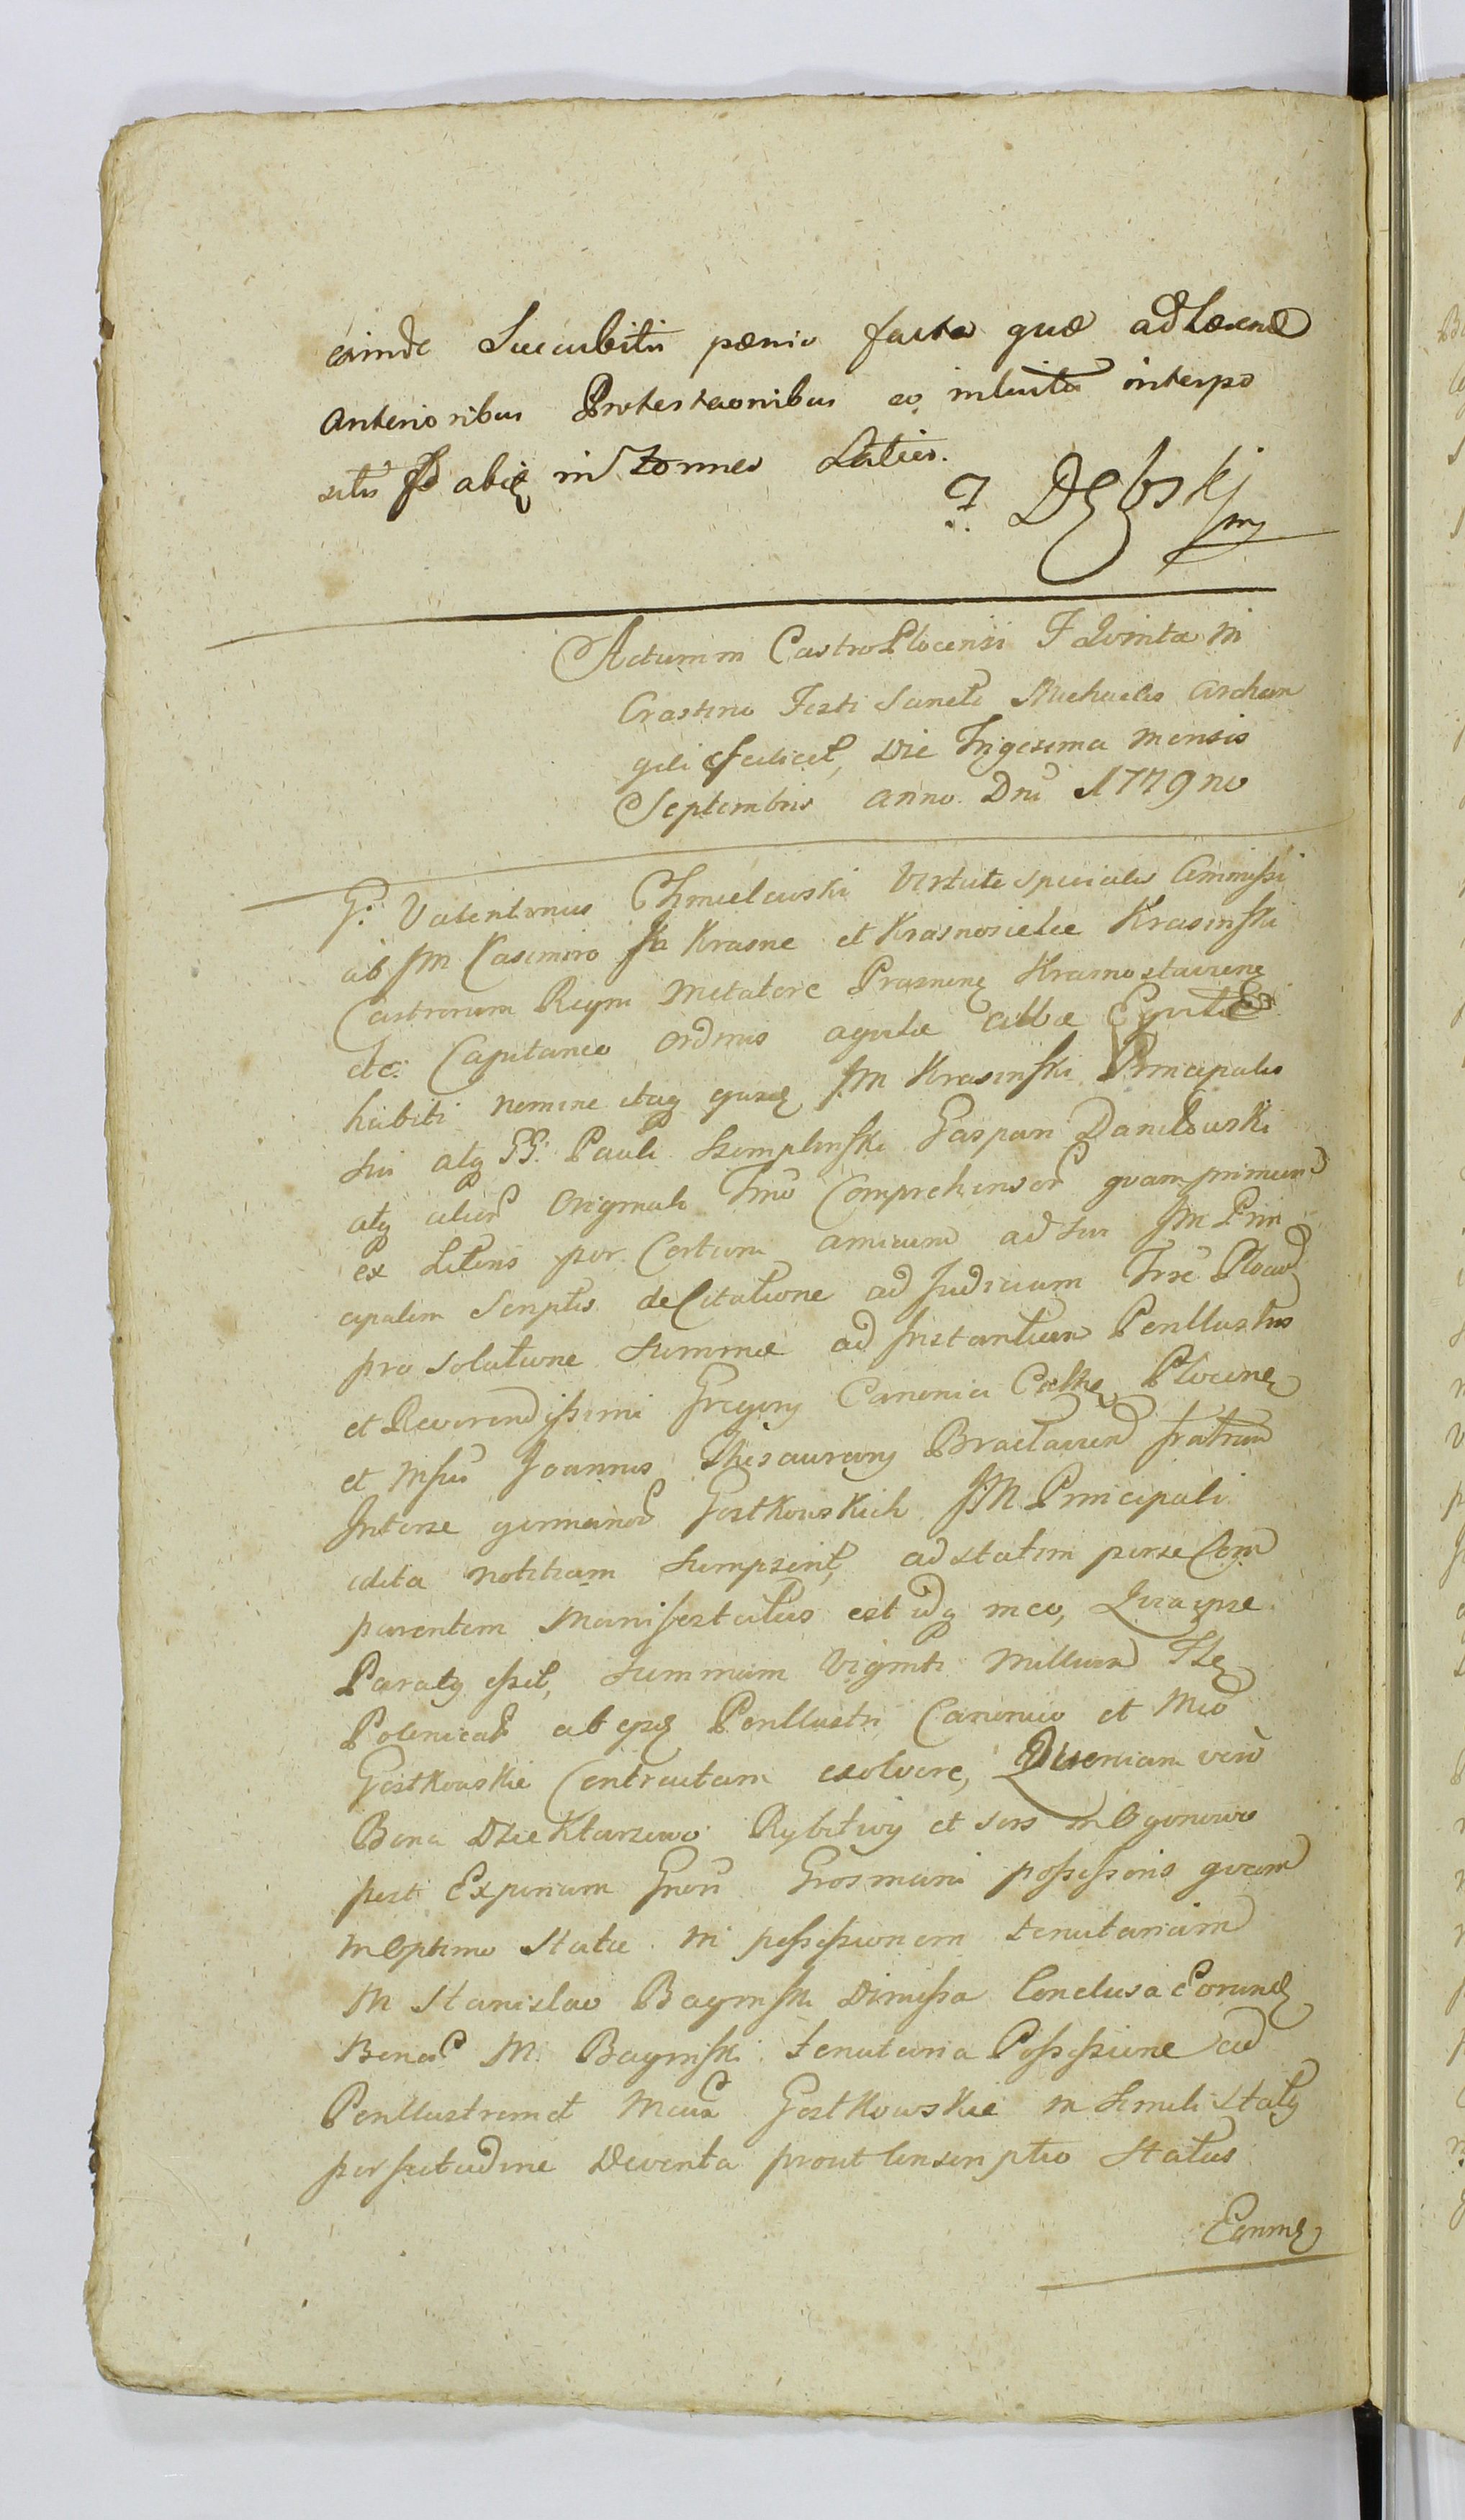 exinde Succubitu pœnis facta quæ adhærend
anterioribus Protestaonibus eo intuitu interpo
sitis abiq in omnes Latius.
Dębskj mp
Actum in Castro Plocensi F Quinta in
Crastino Festi Sancti Michaelis Archan
geli scilicet, Die Trigesima Mensis
Septembris anno Dni 1779no
G: Valentinus Chmielewski Virtute specialis Commissi
ab JM Casimiro In Krasne et Krasnosielce Krasinski
Castrorum Regni Metatore Prasnen Krasnostavien
etc: Capitaneo Ordinis aquilæ albæ Equite
habiti nomine itaq ejusd JM Krasinski Principalis
sui atq GG: Pauli Szemplinski Gaspari Daniszewski
atq alior Originali Tmo Comprehensor quamprimum
ex Literis per Certum amicum ad sui JM Prin
cipalem Scriptis de Citatione ad Judicium Trse Plocen
pro solutione Summæ ad Instantiam Perillustris
et Reverendissimi Gregorij Canonici Cathe Plocen
et Mfci Joannis Thesaurarij Braclavien fratrum
Interse germanor Gostkowskich JM Principali
edita notitiam sumpsint, adstatim perse Com
parentem Manifestatus est idq in eo, Quia ipse
Paratq esset, summam Viginti Millium Flor
Polonical ab eisd Perillustri Canonico et Mco
Gostkowskie Contractam exolvere, Quoniam vero
Bona Dziektarzewo Rybitwy et sors in Ogonowo
post Expirium Gnosi Grosmani possessoris quam
in Optimo Statu in possessionem tenutariam
M Stanislao Baginski Dimissa Conclusa Eorund
Bonor M. Baginski tenutaria Possessione ad
Perillustrem et Mcum Gostkowskie in simili Statq
perfectudine Deventa prout Conscriptio Status
Eorund